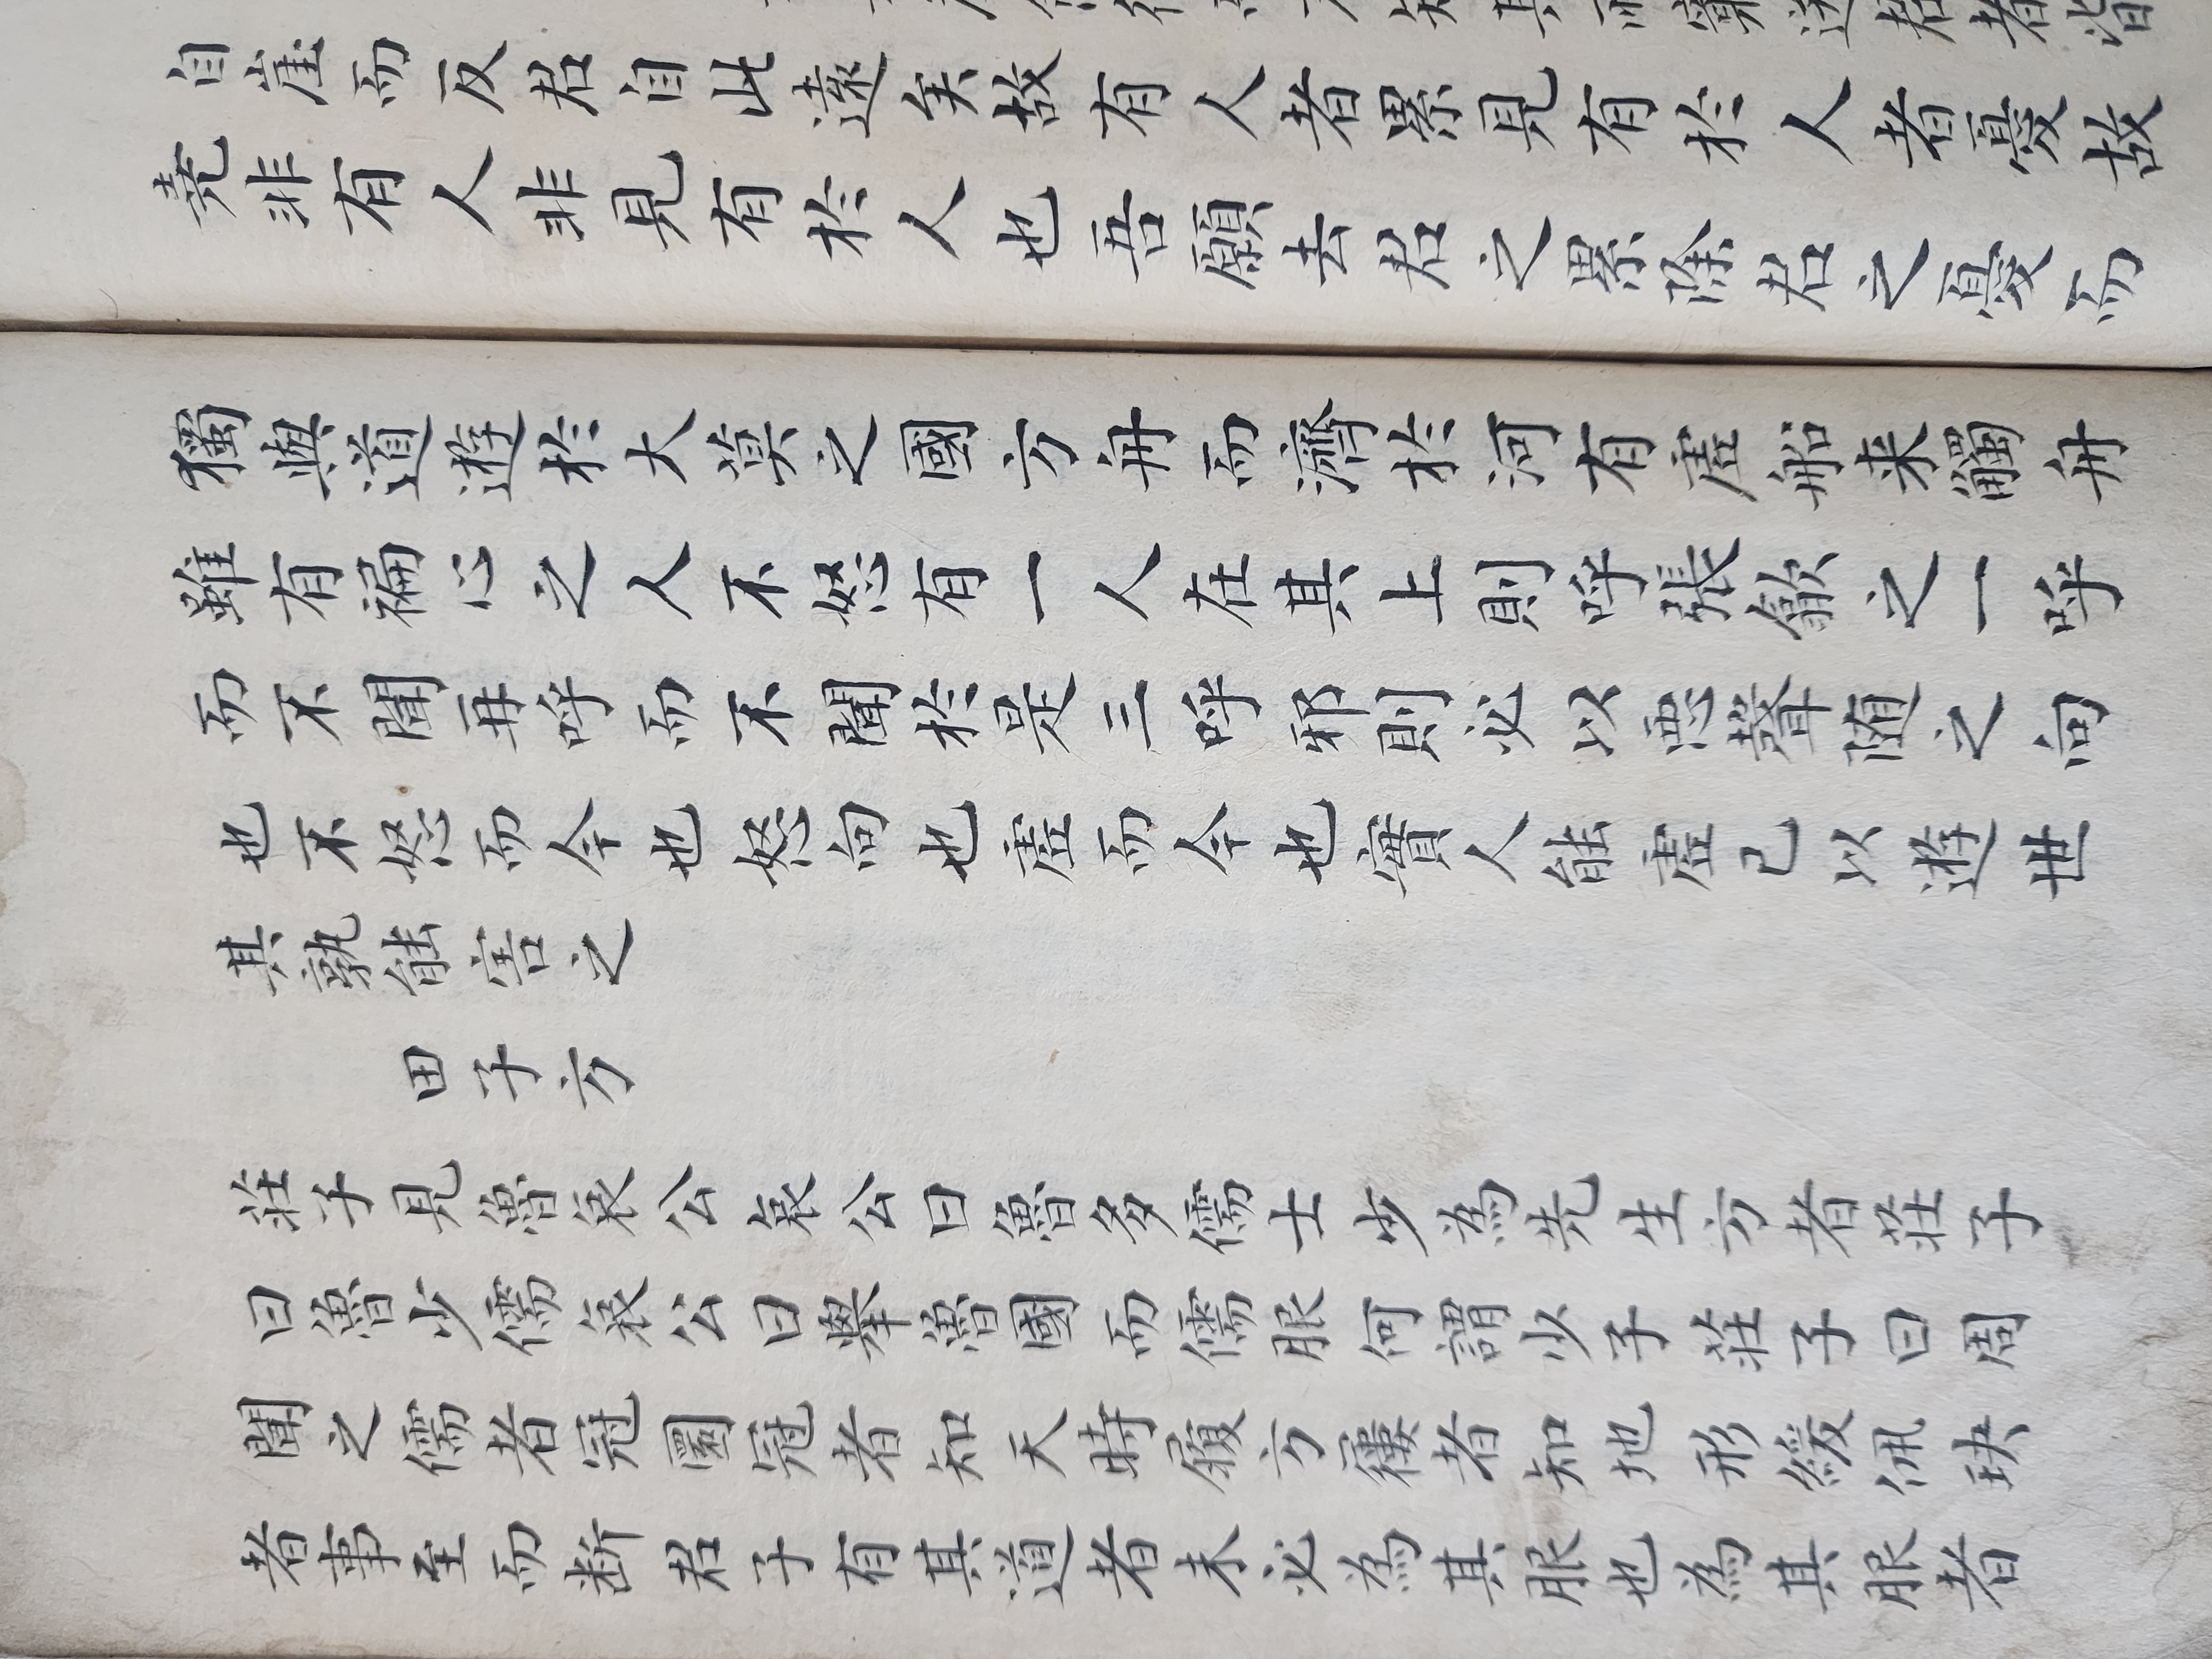 知其所窮送君者皆
自崖而反君自此遠矣故有人者累見有於人者憂故
堯非有人非見有於人也吾願去君之累除君之憂而
獨與道遊於大莫之國方舟而濟於河有虛船来觸舟
雖有褊心之人不怒有一人在其上則呼張歙之一呼
而不聞再呼而不聞於是三呼邪則必以惡聲随之向
也不怒而今也怒向也虛而今也實人能虛己以遊世
其孰能害之
田子方
莊子見魯哀公哀公曰魯多儒士少為先生方者莊子
曰魯少儒哀公曰舉魯國而儒服何謂少子莊子曰周
聞之儒者冠圜冠者知天時履方屨者知地形緩佩玦
者事至而断君子有其道者未必為其服也為其服者